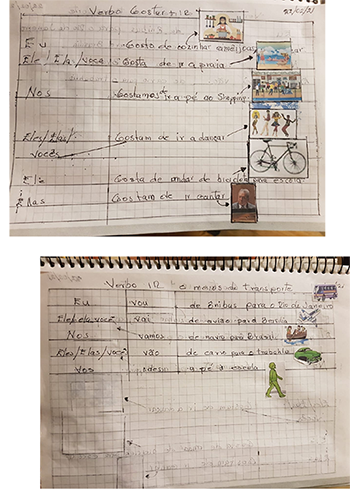 Verbo Gostar + IR
22/02/21
Eu Gosto de cozinhar
Ele/Ela/você Gosta de ir a praia
Nos Gostamos ir a pé ao Shopping.
Eles/Elas/
vocês Gostam de ir a dançar
Ele Gosta de andar de bicicleta para escola
Elas Gostam de ir cantar
Verbo IR e meios de transporte
Eu vou de ônibus para o Rio de Janeiro
Ele/ela/você vai de avião para Brasilia
Nos vamos de navio para Brasil
Eles/Elas/você vão de carro para o trabalho
Vos a pé a escola